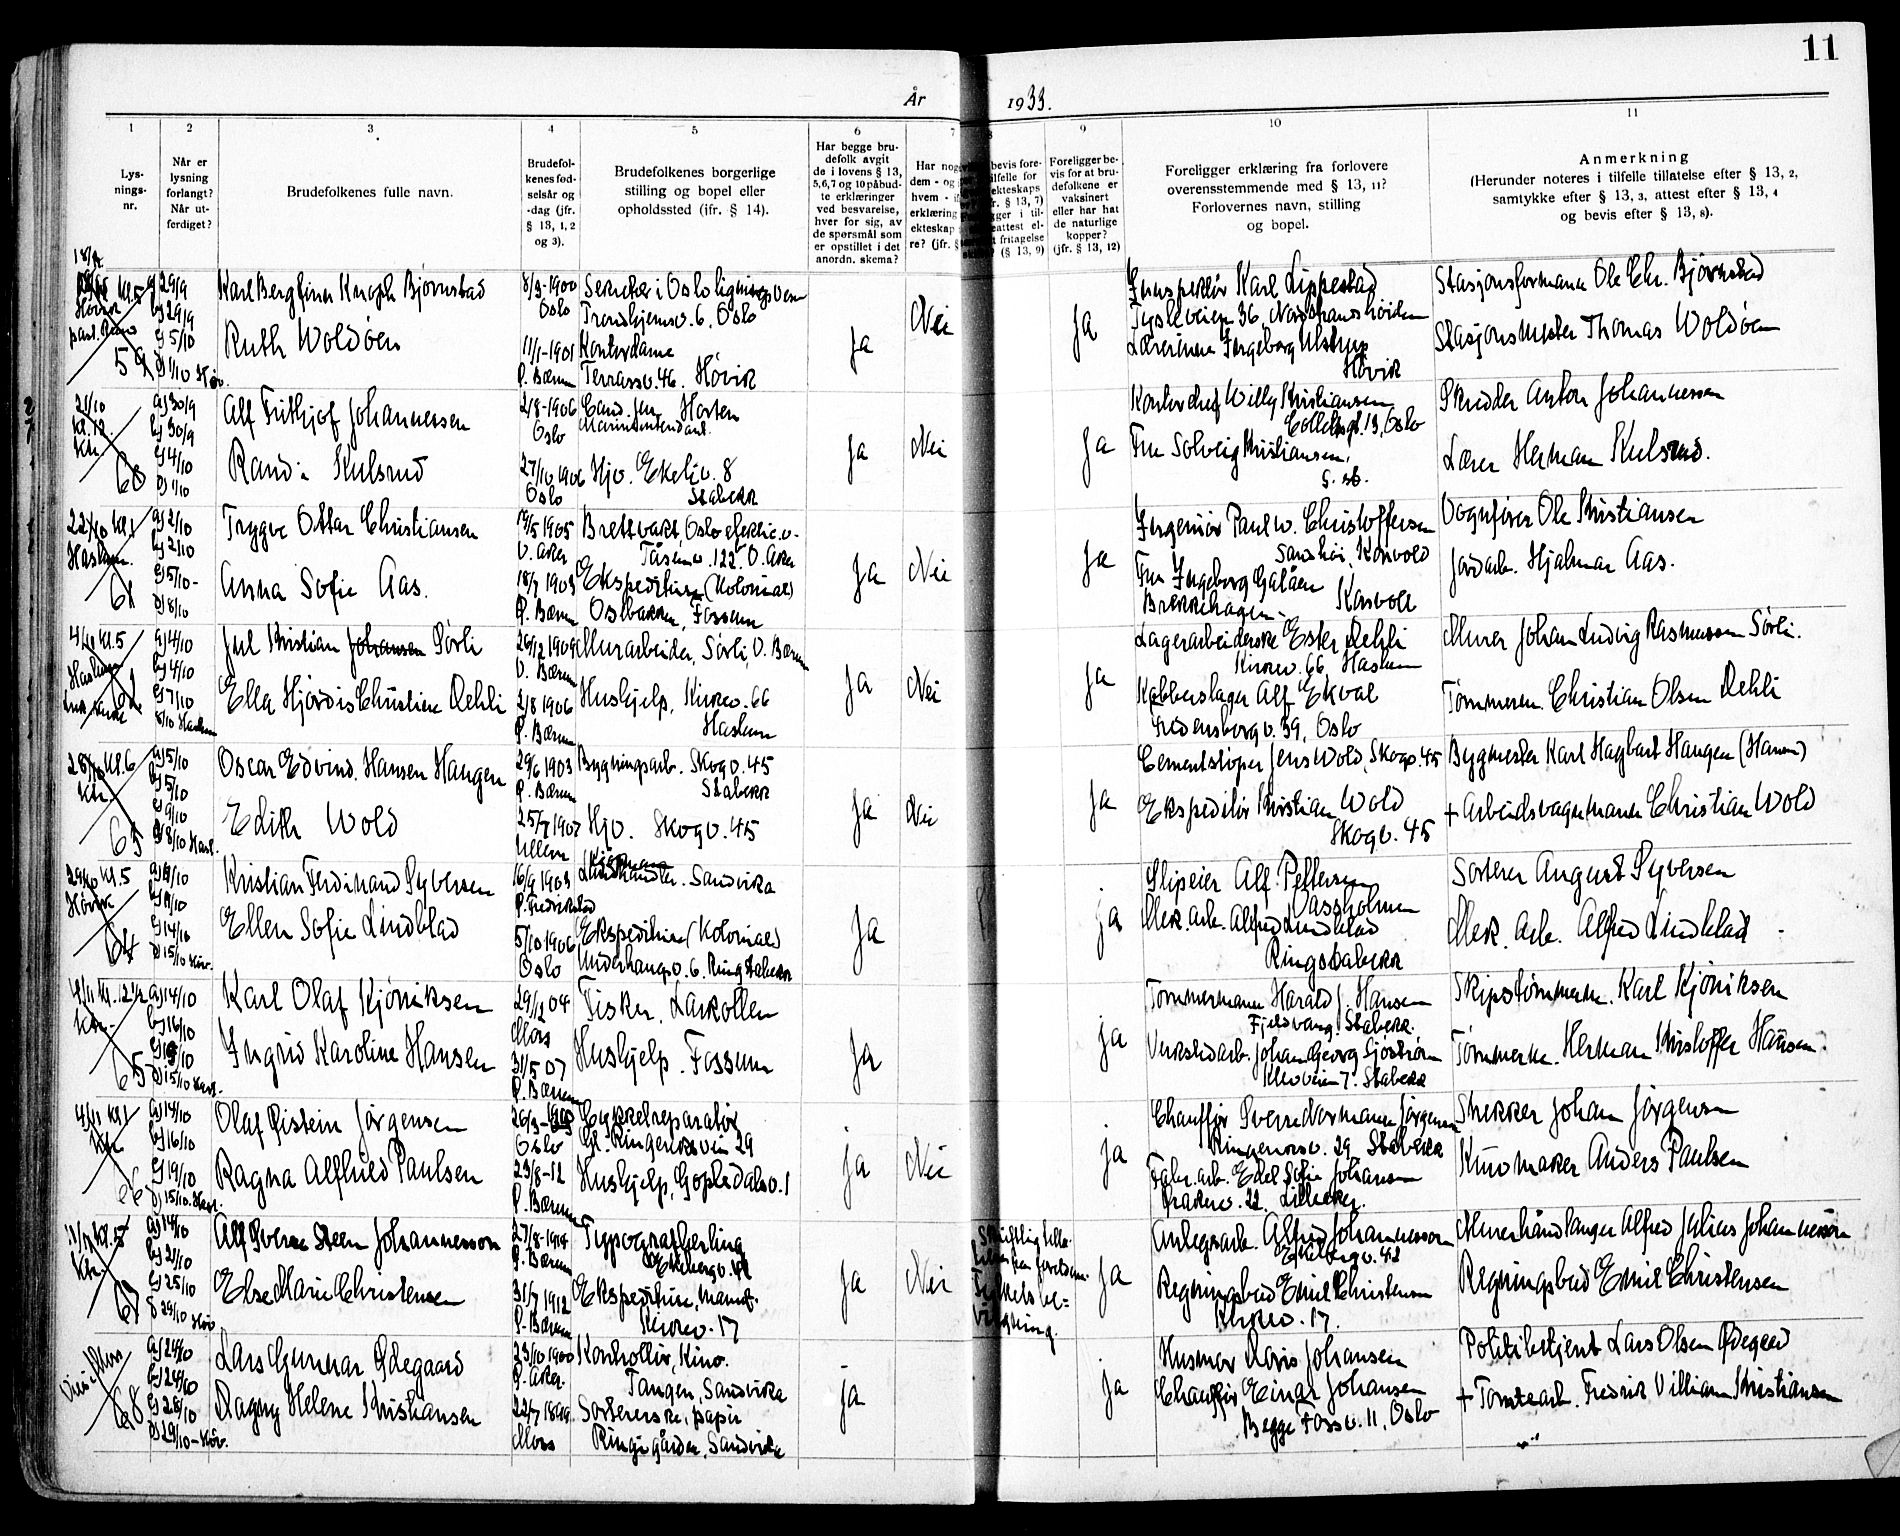 11
År 1933.
1 2 3 4 5 6 7 8 9 10 11
Lys-
nings-
nr.
Når er
lysning
forlangt?
Når ut-
ferdiget?
Brudefolkenes fulle navn.
Brudefol-
kenes fød-
selsår og
-dag (jfr.
§ 13, 1, 2
og 3).
Brudefolkenes borgerlige
stilling og bopel eller
opholdssted (ifr. § 14).
Har begge bru-
defolk avgit
de i lovens § 13,
5,6,7 og 10 påbud-
te erklæringer
ved besvarelse,
hver for sig, av
de spørsmål som
er opstillet i det
anordn. skema?
Har nog
dem - og
hvem - i
erklæring
ekteskap
re? (jfr. §
bevis fore-
tilfelle for
ekteskaps
fr. § 13, 7)
gger i til-
eattest el-
t fritagelse
? (§ 13, 9)
Foreligger be-
vis for at bru-
defolkene er
vaksinert
eller har hat
de naturlige
kopper?
(jfr. § 13, 12)
Foreligger erklæring fra forlovere
overensstemmende med § 13, 11?
Forlovernes navn, stilling
og bopel.
Anmerkning
(Herunder noteres i tilfelle tillatelse efter § 13, 2,
samtykke efter § 13, 3, attest efter § 13, 4
og bevis efter § 13, 8).
Kl. 5
Høvik
59
a) 29/9
b) 29/9
c) 5/10
d) 1/10 Høv.
Karl Bergfinn Knoph Bjørnstad
Ruth Woldøen
8/3-1900
Oslo
11/1-1901
Ø. Bærum
Sekretær i Oslo ligningsvesen
Trondhjemsv. 6, Oslo
Kontordame
Terrassv. 46. Høvik
Ja
Nei
Ja
Inspektør Karl Lippestad
36, Nordstrandshøiden
Lærerinne Ingeborg Ulstrup
Høvik
Stasjonsformann Ole Chr. Bjørnstad
Stasjonsmester Thomas Woldøen
21/10
kl. 12.
Ktr.
60
a) 30/9
b) 30/9
c) 4/10
d) 1/10
Alf Frithjof Johannessen
Randi Kulsrud
2/8-1906
Oslo
27/10 1906
Oslo
Cand. jur. Horten
Hjv. Ekeliv. 8
Stabekk
Ja
Nei
Ja
Kontorchef Willy Kristiansen
13, Oslo
Fru Solveig Kristiansen,
s. st.
Skredder Anton Johannessen
Lærer Herman Kulsrud.
22/10 Kl. 1
Haslum.
61
a) 2/10
b) 2/10
c) 5/10-
d) 8/10
Trygve Ottar Christiansen
Anna Sofie Aas.
14/5 1905
V. Aker
18/7 1903
Ø. Bærum
Brettvakt, Oslo elektr. v.
Tåsenv. 122. V. Aker
Ekspeditrise (Kolonial)
Østbakken, Fossum
Ja
Nei
Ja
Ingeniør Paul W. Christoffersen
Kolsvold
Fru Ingeborg Galåen
Brekkehagen-
Vognfører Ole Kristiansen
Jordarb. Hjalmar Aas.
4/10 Kl. 5
Haslum
62
a) 4/10
b) 4/10
c) 7/10
8/10 Haslum
Jul Kristian Johansen Sørli
Ella Hjørdis Christine Dehli
26/12 1909
V. Bærum
2/8 1906
Ø. Bærum
Murarbeider, Sørli, V. Bærum
Hushjelp, Kirkev. 66
Haslum
Ja
Nei
Ja
Lagerarbeiderske Ester Dehli
Kirkev. 66 Haslum
Kobberslager Alf Ekval
Fredensborgv. 39, Oslo
Murer Johan Ludvig Rasmussen Sørli.
Tømmerm. Christian Olsen Dehli
28/10 Kl. 6
Ktr.
63
a) 5/10
b) 5/10
c) 9/10
d) 8/10 Hasl.
Oscar Edvind Hansen Haugen
Edith Wold
29/6 1903
Ø. Bærum
25/7 1907
Ullern
Bygningsarb. Skogv. 45
Stabekk
Hjv. Skogv. 45
Ja
Nei
Ja
Cementstøper Jens Wold, Skogv. 45
Ekspeditør Kristian Wold
Skogv. 45
Bygmester Karl Hagbart Haugen (Hansen)
+ Arbeidsvognmann Christian Wold
29/10 Kl. 5
Høvik
64
c) 14/10
d) 15/10 Høv.
Kristian Ferdinand Syversen
Ellen Sofie Lindblad
16/9 1903
Ø. Fredrikstad
5/10 1906
Oslo
Sandvika
Ekspeditrise (Kolonial)
Underhaugsv. 6. Ringstabekk
Ja
ja
Slipeier Alf. Pettersen
Vassholmen
Mek. Arb. Alfred Lindblad
Ringstabekk
Sorterer August Syversen
Mek. Arb. Alfred Lindblad
4/11 Kl. 12 1/2
Ktr.
65
a) 14/10
b) 16/10
d) 15/10 Hasl.
Karl Olaf Kjøniksen
Ingrid Karoline Hansen
29/12 04
Moss
31/5 07
Ø. Bærum
Fisker. Larkollen
Hushjelp. Fossum
Ja
ja
Tømmermann Harald J. Hansen
Fjeldvang. Stabekk.
Verkstedarb. Johan Georg Sjøstrøm
7. Stabekk
Skipstømmerm. Karl Kjøniksen
Tømmerm. Herman Kristoffer Hansen
4/11 Kl. 1
Ktr.
66
a) 14/10
b) 16/10
c) 19/10
d) 15/10. Hasl.
Olaf Øistein Jørgensen
Ragna Alfhild Paulsen
Oslo
23/8-12
Ø. Bærum
Cykkelreparatør
Gl. Ringeriksvei 29
Hushjelp, Gopledalsv. 1
ja
Nei
ja
Chauffør Sverre Normann Jørgensen
Ringeriksv. 29, Stabekk
Fabr. arb. Edel Sofie Johansen
22. Lilleaker.
Johan Jørgensen
Anders Paulsen
Ktr.
67
a) 14/10
b) 21/10
c) 25/10
29/10 Høv.
Alf Sverre Steen Johannesson
Else Marie Christensen
Ø. Bærum
31/7 1912
Ø. Bærum
Typograflærling
Ekspeditrise,
Kirkev. 17
Ja
Nei
Skriftlig tilla-
Ja
Anlegsarb. Alfred Johannesson
42
Regningsbud Emil Christensen
Kirkev. 17.
Murerhåndlanger Alfred Julius Johannesson
Regningsbud Emil Christensen
68
a) 24/10
b) 24/10
c) 28/10
d) 29/10-Høv.
Lars Gunnar Ødegaard
Dagny Helene Kristiansen
23/10 1900
Ø. Aker.
22/7 1899
Moss
Kontrollør, Kino.
Tangen, Sandvika
Sortererske, papir
Ringigården, Sandvika
ja
ja
Husmor Doris Johansen
Chauffør Einar Johansen
Begge Fossv. 11, Oslo
Politibetjent Lars Olsen Ødegård
+ Tomtearb. Fredrik Villiam Kristiansen